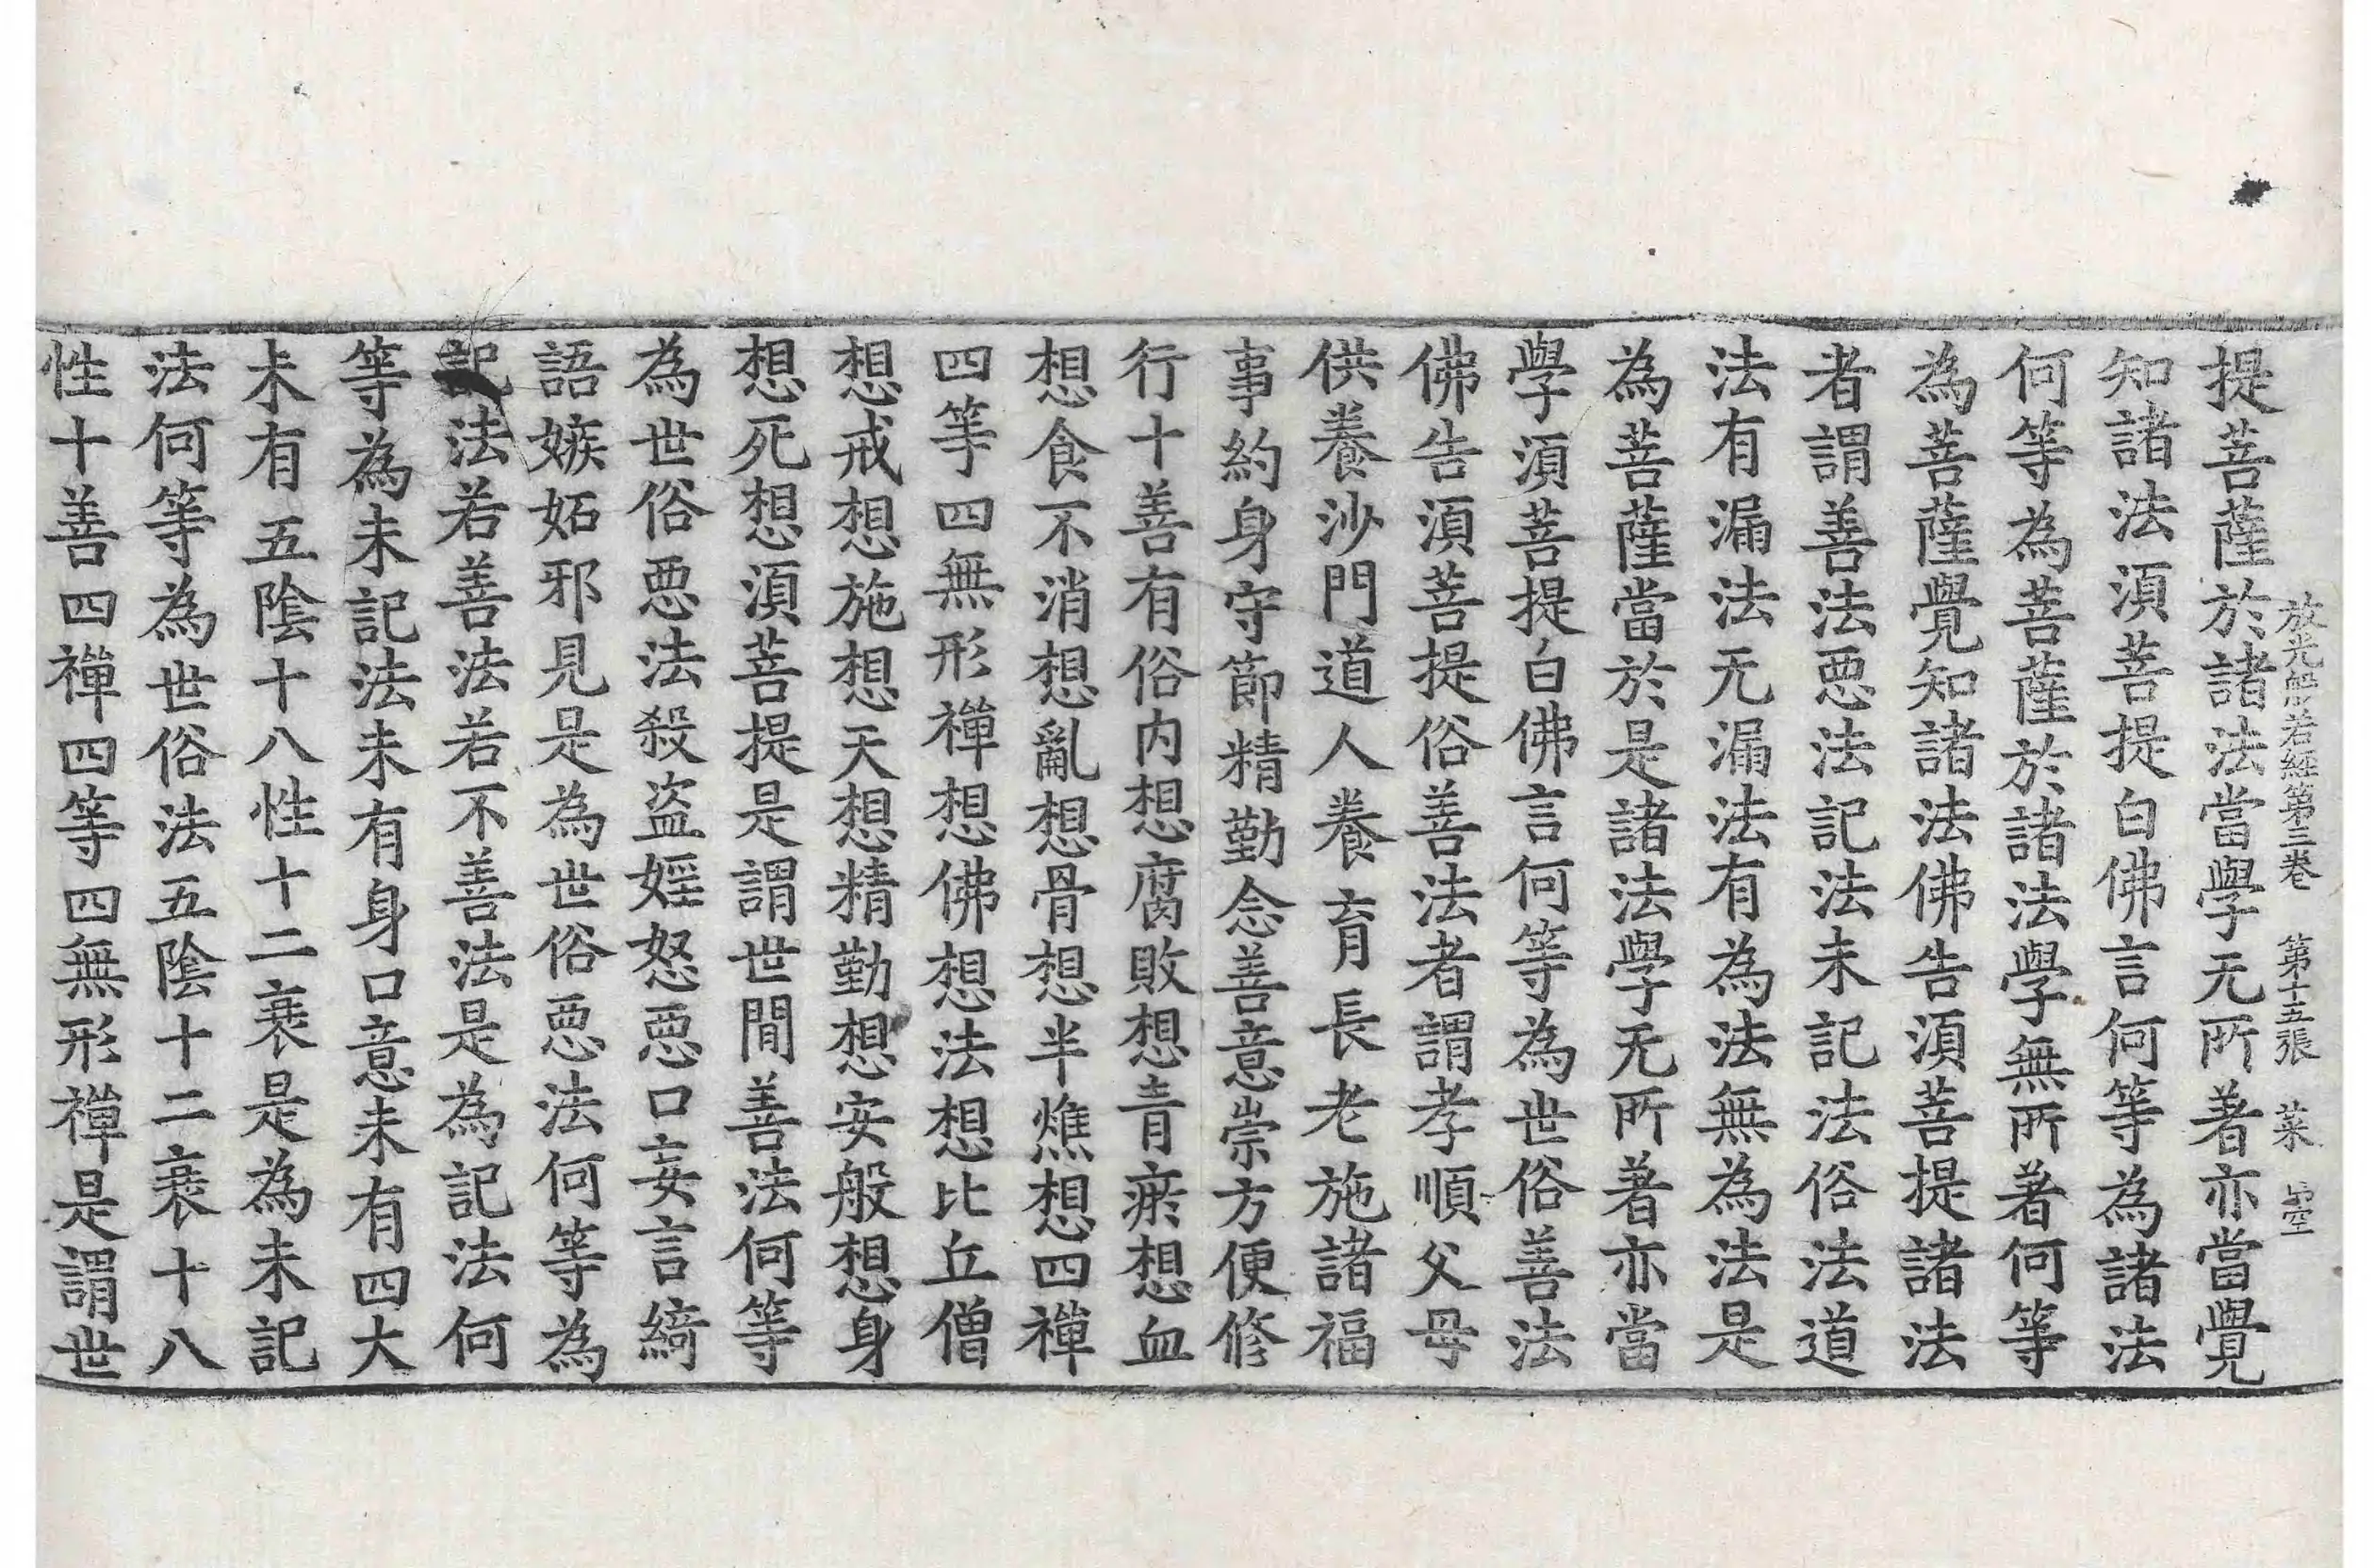 放光般若經第三卷 第十五張 菜
提菩薩於諸法當學无所著亦當覺
知諸法須菩提白佛言何等為諸法
何等為菩薩於諸法學無所著何等
為菩薩覺知諸法佛告須菩提諸法
者謂善法惡法記法未記法俗法道
法有漏法无漏法有為法無為法是
為菩薩當於是諸法學无所著亦當
學須菩提白佛言何等為世俗善法
佛告須菩提俗善法者謂孝順父母
供養沙門道人養育長老施諸福
事約身守節精勤念善意崇方便修
行十善有俗内想腐敗想青瘀想血
想食不消想亂想骨想半燋想四禪
四等四無形禪想佛想法想比丘僧
想戒想施想天想精勤想安般想身
想死想須菩提是謂世間善法何等
為世俗惡法殺盜婬怒惡口妄言綺
語嫉妬邪見是為世俗惡法何等為
記法若善法若不善法是為記法何
等為未記法未有身口意未有四大
未有五陰十八性十二衰是為未記
法何等為世俗法五陰十二衰十八
性十善四禪四等四無形禪是謂世